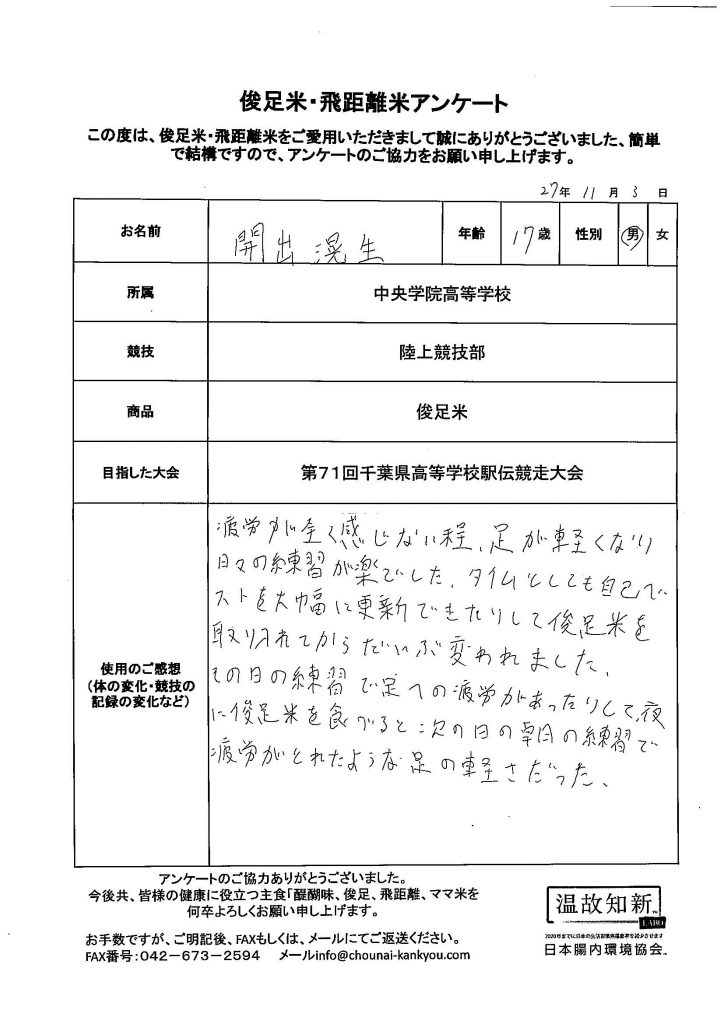 俊足米・飛距離米アンケート
この度は、俊足米・飛距離米をご愛用いただきまして誠にありがとうございました、簡単
で結構ですので、アンケートのご協力をお願い申し上げます。
27年 11月 3日
お名前 開出滉生 年齢 17歳 性別 男 女
所属 中央学院高等学校
競技 陸上競技部
商品 俊足米
目指した大会 第71回千葉県高等学校駅伝競走大会
使用のご感想
(体の変化・競技の
記録の変化など)
疲労が全く感じない程、足が軽くなり
日々の練習が楽でした、タイムとしても自己ベ
ストを大幅に更新できたりして俊足米を
取り入れてからだいぶ変われました、
その日の練習で足への疲労があったりして、夜
に俊足米を食べると次の日の朝の練習で
疲労がとれたような足の軽さだった、
アンケートのご協力ありがとうございました。
今後共、皆様の健康に役立つ主食「醍醐味、俊足、飛距離、ママ米を
何卒よろしくお願い申し上げます。
お手数ですが、ご明記後、FAXもしくは、メールにてご返送ください。
FAX番号:042-673-2594 メールinfo@chounai-kankyou.com
温故知新
LABO
2020年までに日本の生活習慣病罹患率を減少させます
日本腸内環境協会